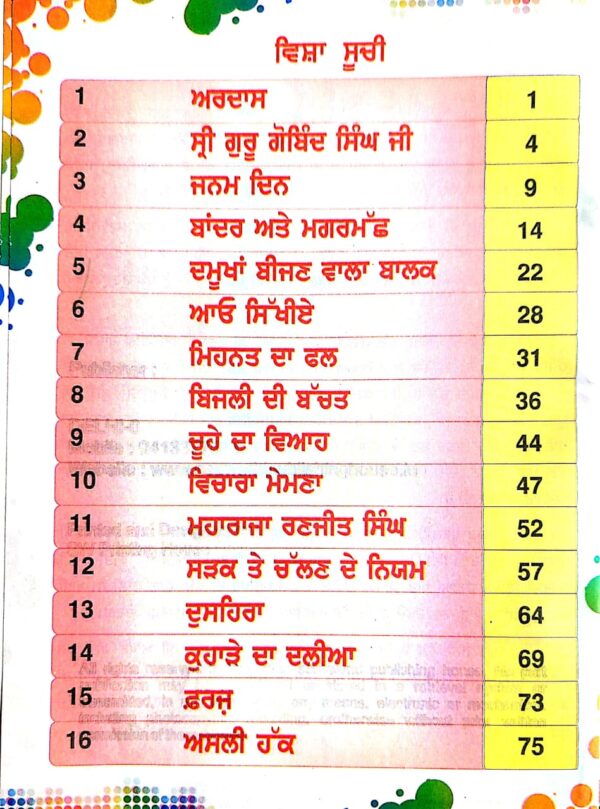 ਵਿਸ਼ਾ ਸੂਚੀ
1 ਅਰਦਾਸ 1
2 ਸ੍ਰੀ ਗੁਰੂ ਗੋਬਿੰਦ ਸਿੰਘ ਜੀ 4
3 ਜਨਮ ਦਿਨ 9
4 ਬਾਂਦਰ ਅਤੇ ਮਗਰਮੱਛ 14
5 ਦਮੂਖਾਂ ਬੀਜਣ ਵਾਲਾ ਬਾਲਕ 22
6 ਆਓ ਸਿੱਖੀਏ 28
7 ਮਿਹਨਤ ਦਾ ਫਲ 31
8 ਬਿਜਲੀ ਦੀ ਬੱਚਤ 36
9 ਚੂਹੇ ਦਾ ਵਿਆਹ 44
10 ਵਿਚਾਰਾ ਮੇਮਣਾ 47
11 ਮਹਾਰਾਜਾ ਰਣਜੀਤ ਸਿੰਘ 52
12 ਸੜਕ ਤੇ ਚੱਲਣ ਦੇ ਨਿਯਮ 57
13 ਦੁਸਹਿਰਾ 64
14 ਕੁਹਾੜੇ ਦਾ ਦਲੀਆ 69
15 ਫ਼ਰਜ਼ 73
16 ਅਸਲੀ ਹੱਕ 75